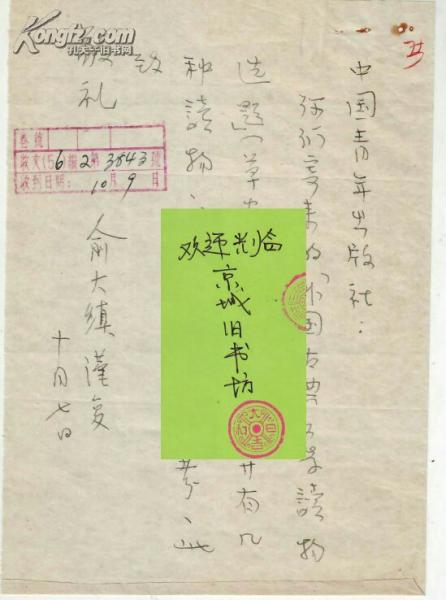 Kongfz.com
孔夫子旧书网
中国青年出版社：
你们寄来的「外国古典文学讀物
选题(草
有几
种讀物
考，此
致
敬礼
俞大縝謹复
十月七日
卷號
收文(56)編2 3843號
收到日期：10月9日
欢迎光临
京城旧书坊